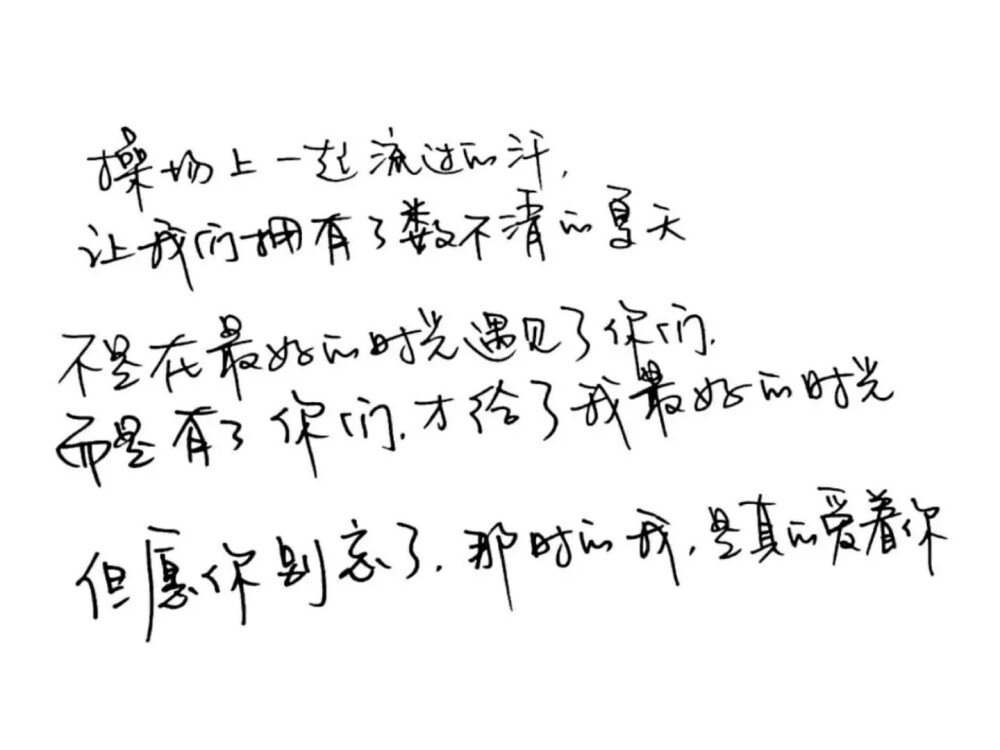 操场上一起流过的汗,
让我们拥有了数不清的夏天
不是在最好的时光遇见了你们,
而是有了你们,才给了我最好的时光
但愿你别忘了,那时的我,是真的爱着你